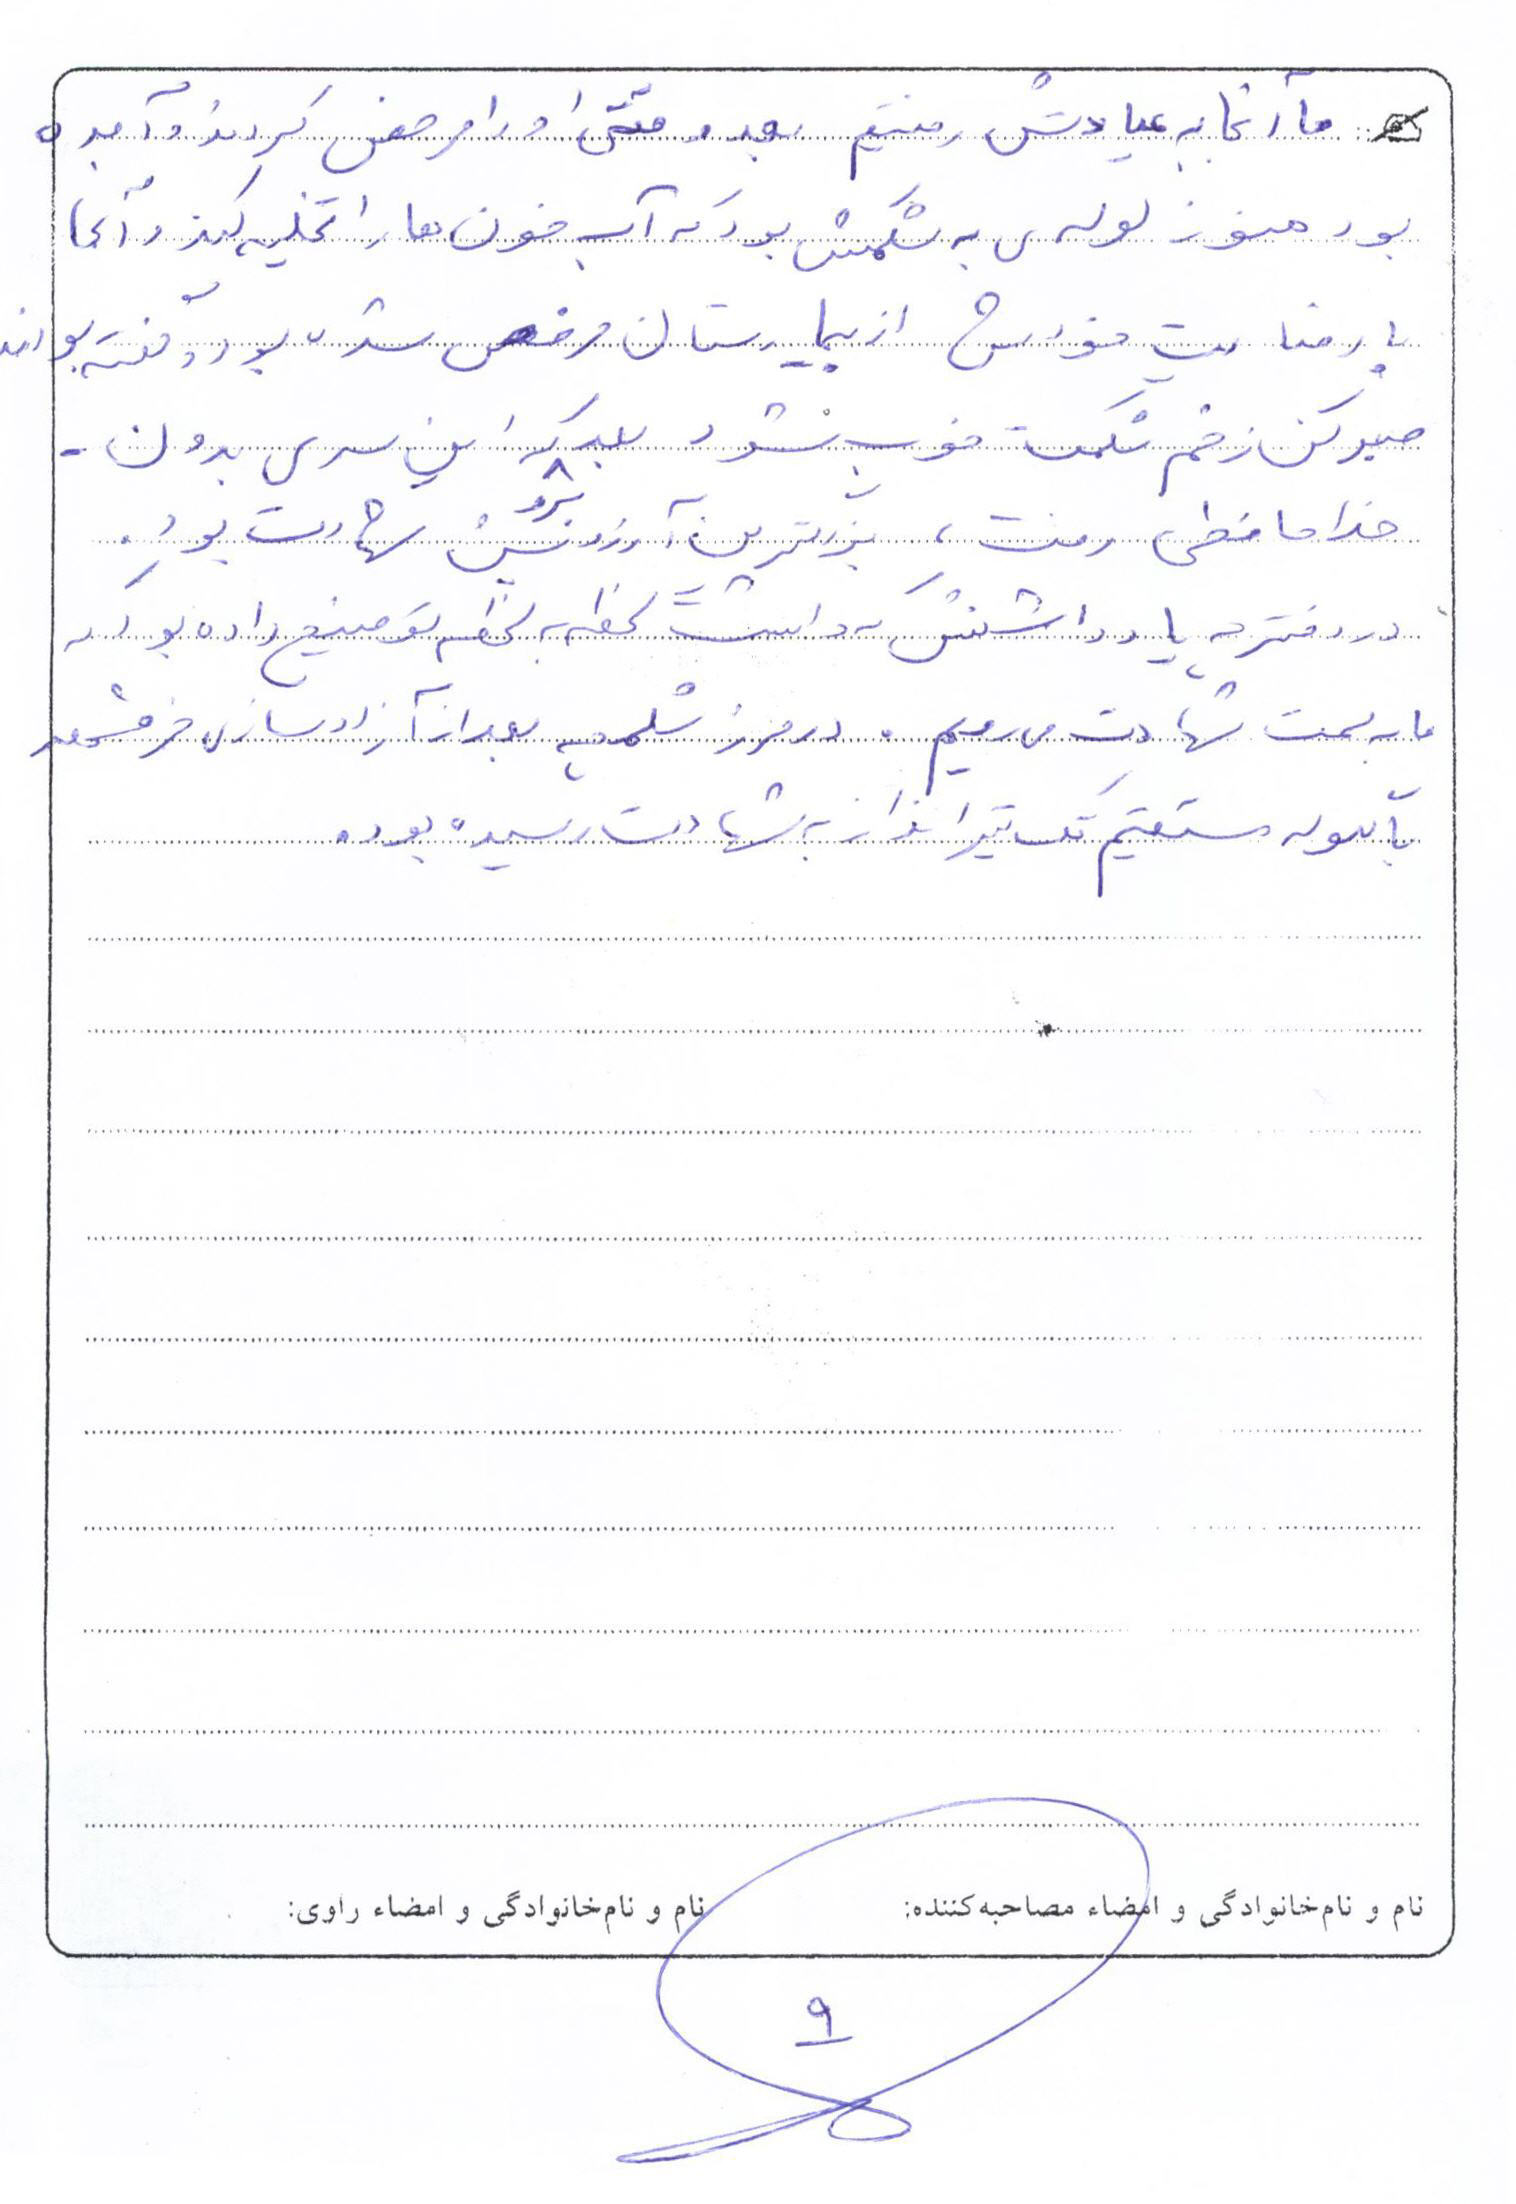 ما آنجا به عیادتش رفتیم بعد وقتی او را مرخص کردند و آمده
بود هنوز لوله‌ی به شکمش بود که آب خون ها را تخلیه کند و آنجا
با رضایت خودش از بیمارستان مرخص شده بود و گفته بودند
صبر کن زخم شکمت خوب بشود بعد که این سری بدون -
خداحافظی رفت، بزرگترین آرزویش شهادت بود.
در دفترچه یادداشتش که داشت لحظه به لحظه توضیح داده بود که
ما به سمت شهادت می رویم. در مرز شلمچه بعد از آزادسازی خرمشهر
با گلوله مستقیم تک تیرانداز به شهادت رسیده بود.
نام و نام‌خانوادگی و امضاء مصاحبه‌کننده: نام و نام‌خانوادگی و امضاء راوی:
۹